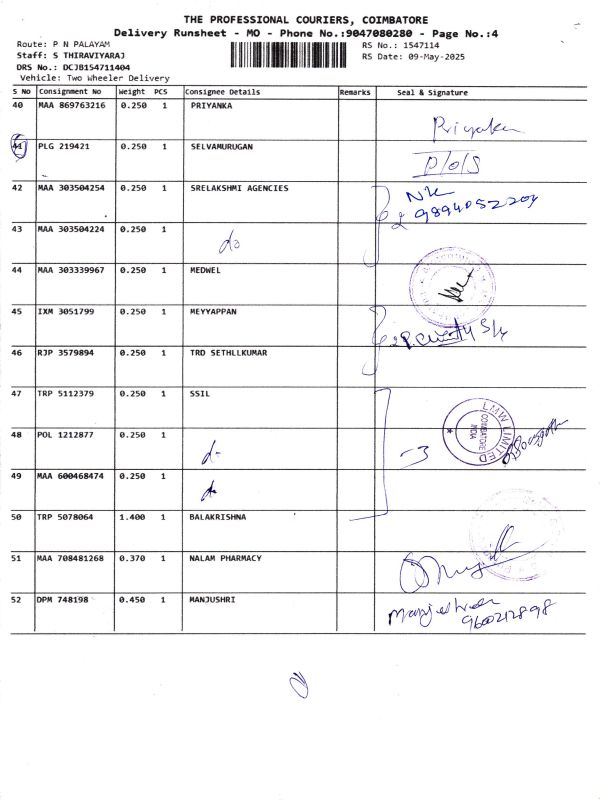 THE PROFESSIONAL COURIERS, COIMBATORE
Delivery Runsheet - MO - Phone No.:9047080280 - Page No.:4
Route: P N PALAYAM
Staff: S THIRAVIYARAJ
DRS No.: DCJB154711404
Vehicle: Two Wheeler Delivery
RS No.: 1547114
RS Date: 09-May-2025
S No Consignment No Weight PCS Consignee Details Remarks Seal & Signature
40 MAA 869763216 0.250 1 PRIYANKA
Priyanka
41 PLG 219421 0.250 1 SELVAMURUGAN
P/o/S
42 MAA 303504254 0.250 1 SRELAKSHMI AGENCIES
9894052204
43 MAA 303504224 0.250 1 do
2
44 MAA 303339967 0.250 1 MEDWEL
45 IXM 3051799 0.250 1 MEYYAPPAN
46 RJP 3579894 0.250 1 TRD SETHLLKUMAR
47 TRP 5112379 0.250 1 SSIL
LMW LIMITED
COIMBATORE
INDIA
48 POL 1212877 0.250 1
-3
49 MAA 600468474 0.250 1
50 TRP 5078064 1.400 1 BALAKRISHNA
51 MAA 708481268 0.370 1 NALAM PHARMACY
52 DPM 748198 0.450 1 MANJUSHRI
9600212898